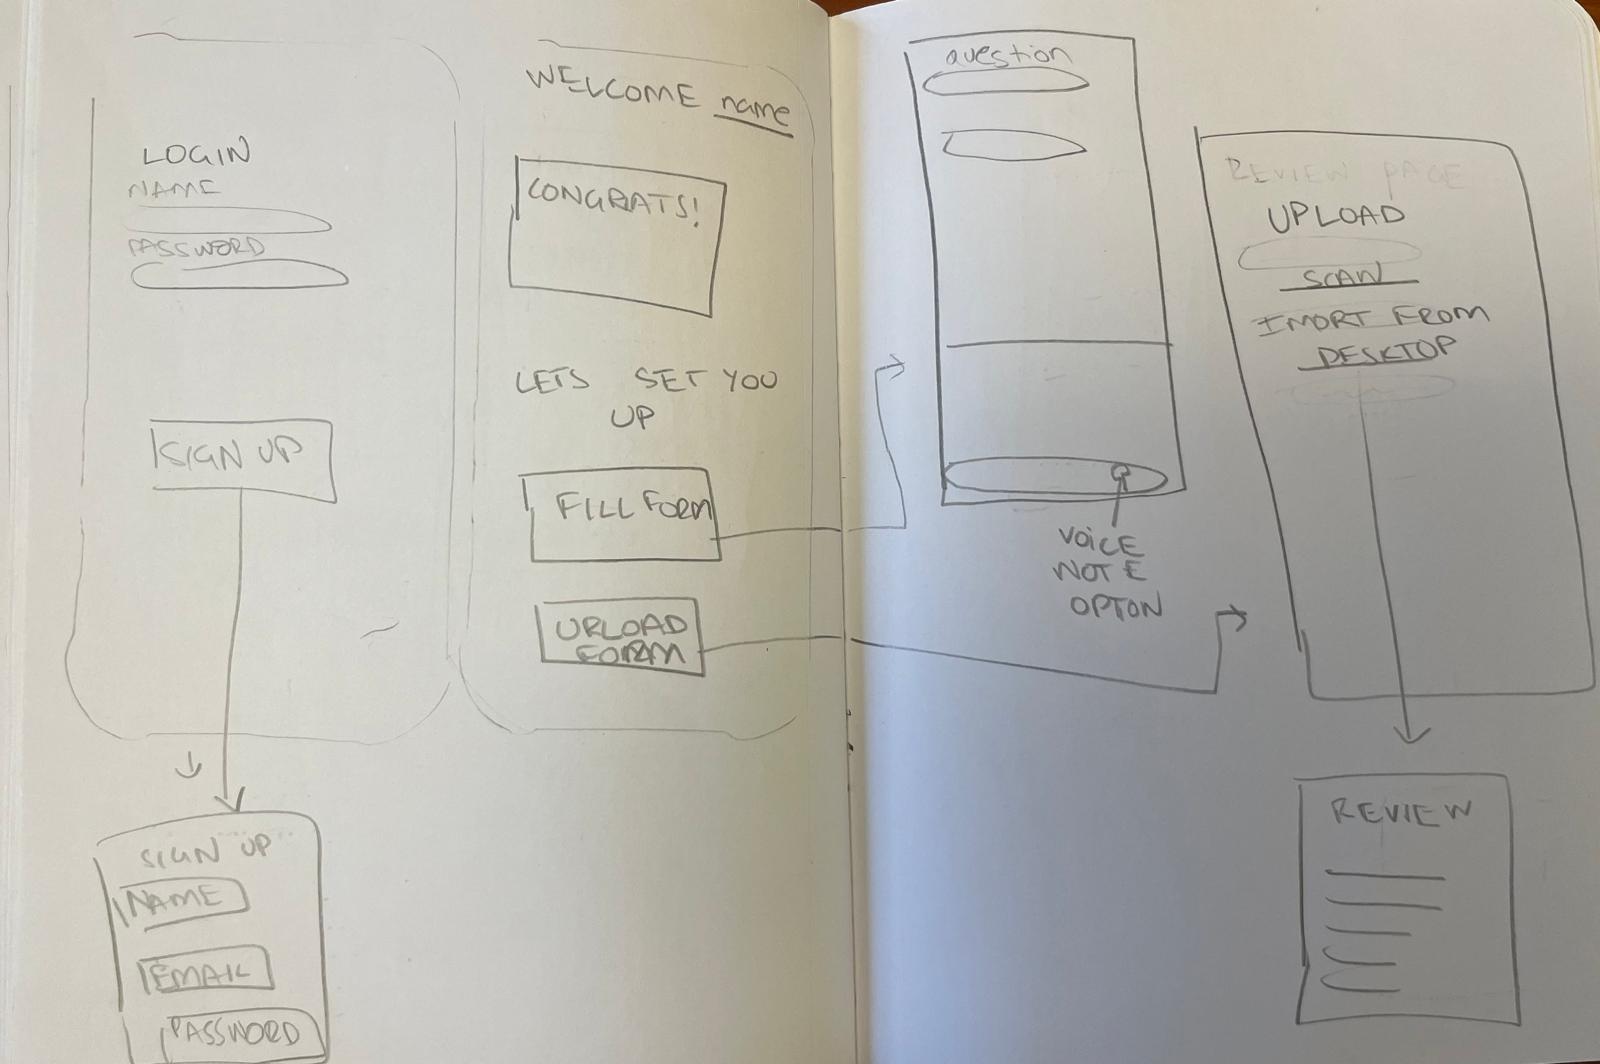 LOGIN
NAME
PASSWORD
SIGN UP
SIGN UP
NAME
EMAIL
PASSWORD
WELCOME name
CONGRATS!
LETS SET YOU
UP
FILL FORM
UPLOAD
FORM
question
VOICE
NOTE
OPTON
REVIEW PAGE
UPLOAD
SCAN
IMORT FROM
DESKTOP
REVIEW